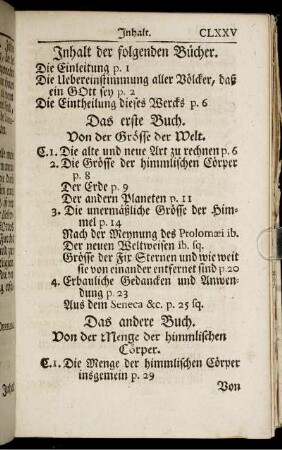 Inhalt. CLXXV
Inhalt der folgenden Bücher.
Die Einleitung p. 1
Die Uebereinstimmung aller Völcker, daß
ein GOtt sey p. 2
Die Eintheilung dieses Wercks p. 6
Das erste Buch.
Von der Grösse der Welt.
C. 1. Die alte und neue Art zu rechnen p. 6
2. Die Grösse der himmlischen Cörper
p. 8
Der Erde p. 9
Der andern Planeten p. 11
3. Die unermäßliche Grösse der Him-
mel p. 14
Nach der Meynung des Ptolomæi ib.
Der neuen Weltweisen ib. sq.
Grösse der Fix Sternen und wie weit
sie von einander entfernet sind p. 20
4. Erbauliche Gedancken und Anwen-
dung p. 23
Aus dem Seneca &c. p. 25 sq.
Das andere Buch.
Von der Menge der himmlischen
Cörper.
C. 1. Die Menge der himmlischen Cörper
insgemein p. 29
Von